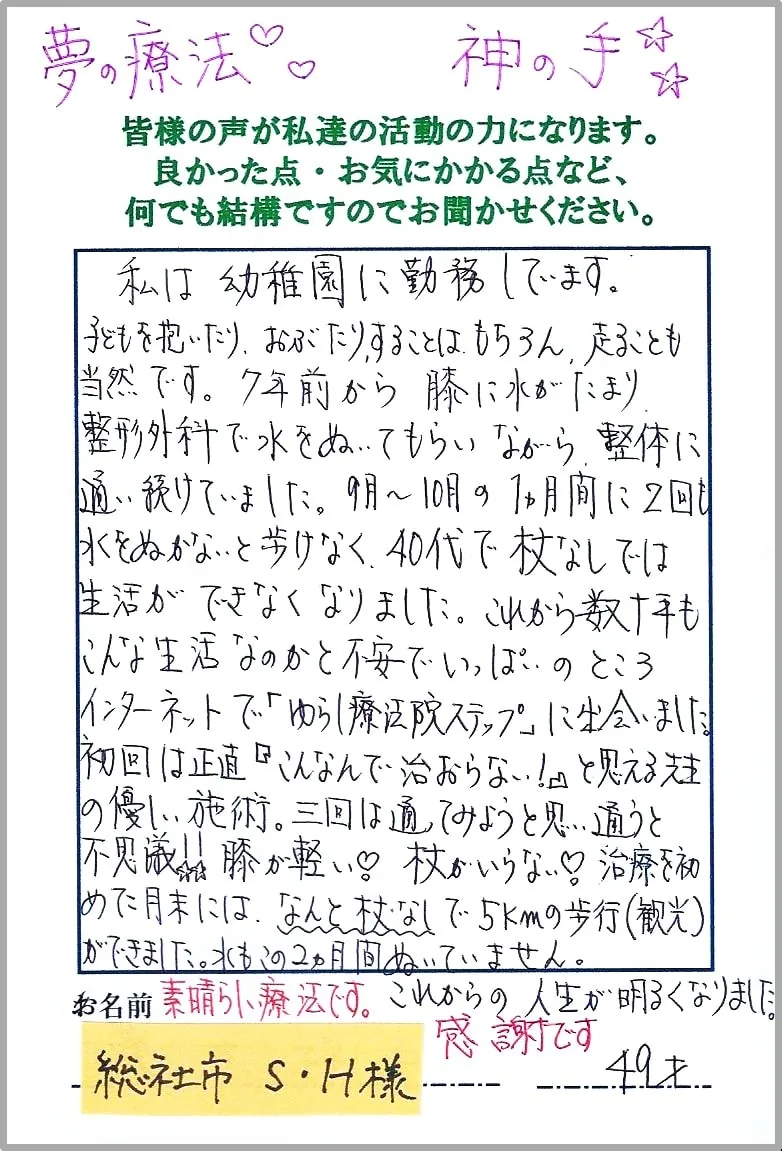 夢の療法♡♡ 神の手☆☆
皆様の声が私達の活動の力になります。
良かった点・お気にかかる点など、
何でも結構ですのでお聞かせください。
私は幼稚園に勤務しています。
子どもを抱いたり、おぶったり、することは、もちろん、走ることも
当然です。7年前から膝に水がたまり、
整形外科で水をぬいてもらいながら、整体に
通い続けていました。9月〜10月の1ヵ月間に2回も
水をぬかないと歩けなく、40代で杖なしでは
生活ができなくなりました。これから数十年も
こんな生活なのかと不安でいっぱいのところ
インターネットで「ゆらし療法院ステップ」に出会いました。
初回は正直『こんなんで治おらない!』と思える先生
の優しい施術。三回は通ってみようと思い通うと
不思議!!☆☆膝が軽い♡杖がいらない♡治療を初
めてた月末には、なんと杖なしで5kmの歩行(観光)
ができました。水もこの2ヵ月間ぬいていません。
お名前 素晴らしい療法です。これからの人生が明るくなりました。
感謝です
総社市 S・H様 49才